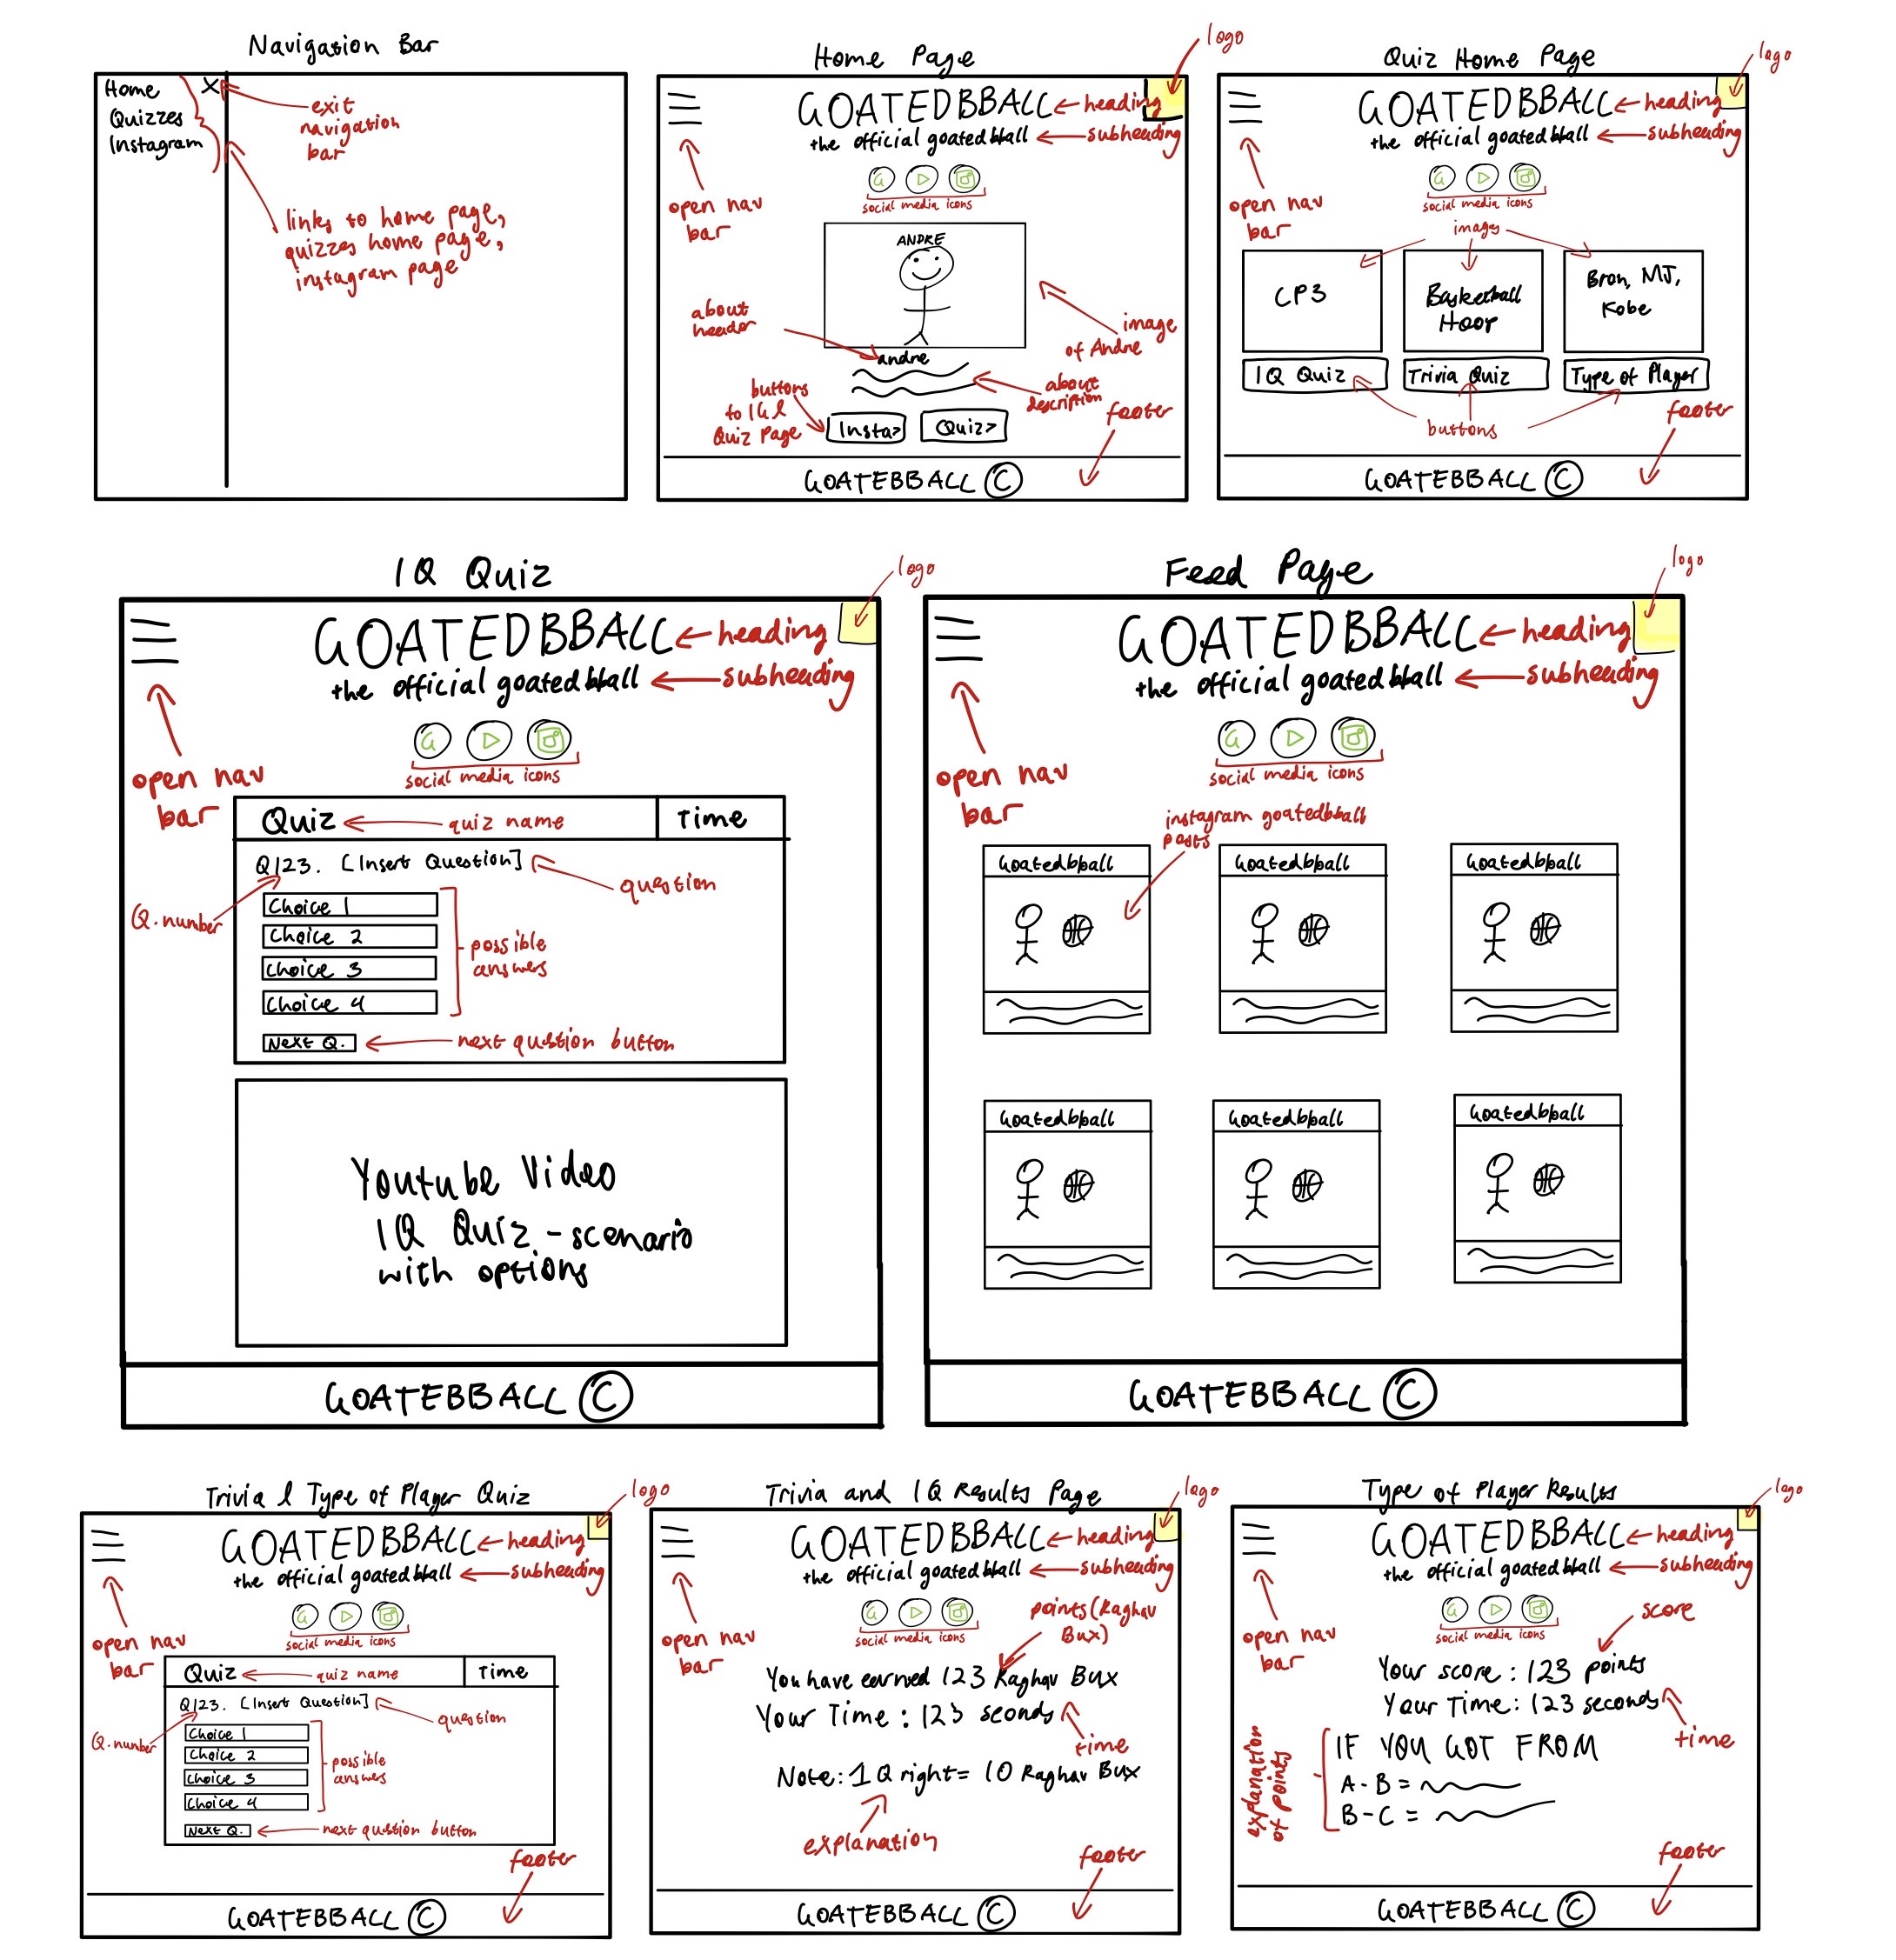 Navigation Bar
Home X
Quizzes
Instagram
exit
navigation
bar
links to home page,
quizzes home page,
instagram page
Home Page
logo
GOATEDBBALL ← heading
the official goatedbball ← subheading
social media icons
open nav
bar
ANDRE
about
header
image
of Andre
andre
about
description
buttons
to IG &
Quiz Page
Insta>
Quiz>
footer
GOATEBBALL ©
Quiz Home Page
logo
GOATEDBBALL ← heading
the official goatedbball ← subheading
social media icons
open nav
bar
images
CP3
Basketball
Hoop
Bron, MJ,
Kobe
IQ Quiz
Trivia Quiz
Type of Player
buttons
footer
GOATEBBALL ©
IQ Quiz
logo
GOATEDBBALL ← heading
the official goatedbball ← subheading
social media icons
open nav
bar
Quiz ← quiz name
Time
Q123. [Insert Question]
question
Q.number
Choice 1
Choice 2
Choice 3
Choice 4
possible
answers
Next Q. ← next qustion button
Youtube Video
IQ Quiz - scenario
with options
GOATEBBALL ©
Feed Page
logo
GOATEDBBALL ← heading
the official goatedbball ← subheading
social media icons
open nav
bar
instagram goatedbball
posts
Goatedbball
Goatedbball
Goatedbball
Goatedbball
Goatedbball
Goatedbball
GOATEBBALL ©
Trivia & Type of Player Quiz
logo
GOATEDBBALL ← heading
the official goatedbball ← subheading
social media icons
open nav
bar
Quiz ← quiz name
Time
Q123. [Insert Question]
question
Q.number
Choice 1
Choice 2
Choice 3
Choice 4
possible
answers
Next Q. ← next qustion button
footer
GOATEBBALL ©
Trivia and IQ Results Page
logo
GOATEDBBALL ← heading
the official goatedbball ← subheading
social media icons
open nav
bar
points (Raghav
Bux)
You have earned 123 Raghav Bux
Your Time : 123 seonds
time
Note: 1 Q right = 10 Raghav Bux
explanation
footer
GOATEBBALL ©
Type of Player Results
logo
GOATEDBBALL ← heading
the official goatedbball ← subheading
social media icons
open nav
bar
score
Your score : 123 points
Your Time : 123 seconds
time
explanation
of points
IF YOU GOT FROM
A - B =
B - C =
footer
GOATEBBALL ©